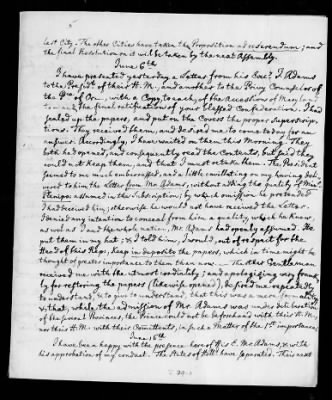 last City. The other Cities have taken the Proposition ad referendum; and
the final Resolution on it will be taken by the next Assembly.
June 6th
I have presented yesterday a Letter from his Excy. J. Adams
to the Presidt. of their H. M., and another to the Privy Counsellor of
the Pce. of Or., with a Copy, to each, of the Accession of Maryland
to and the final ratification of your blessed Confederation. I had
sealed up the papers, and put on the Covers the proper Superscrip-
tions. They received them, and desired me to come today for an
answer. Accordingly, I have waited on them this Morning. They
both had opened, and consequently read the Contents; but said they
could not keep them, and that I must retake them. The President
seemed to me much embarrassed, and a little cavilling on my having deli-
vered to him the Letter from Mr. Adams, without adding the quality of Minr.
Plenipo: assumed in the Subscription; by which omission he pretended
I had deceived him; otherwise he would not have received the Letter.
I denied any intention to conceal from him a quality, which he knew,
as well as I and the whole nation, Mr. Adams had openly assumed. He
put them in my hat; & I told him, I would, out of respect for the
Head of this Rep., keep in deposite the papers, which in time might be
thought of greater importance to them than now. The other Gentleman
received me with the utmost cordiality; and apologizing very frank-
ly for restoring the papers (likewise opened), desired me repeatedly
to understand, & to give to understand, that this was a mere formality;
& that, while the admission of Mr. Adams was under deliberation
of the several Provinces, the Prince could not be beforehand with their H. M.,
nor their H. M. with their Committents, in such a Matter of the 1st importance.
June 15th
I have been happy with the presence here of His E. Mr. Adams, & with
his approbation of my conduct. The States of Holl. have separated. Their next